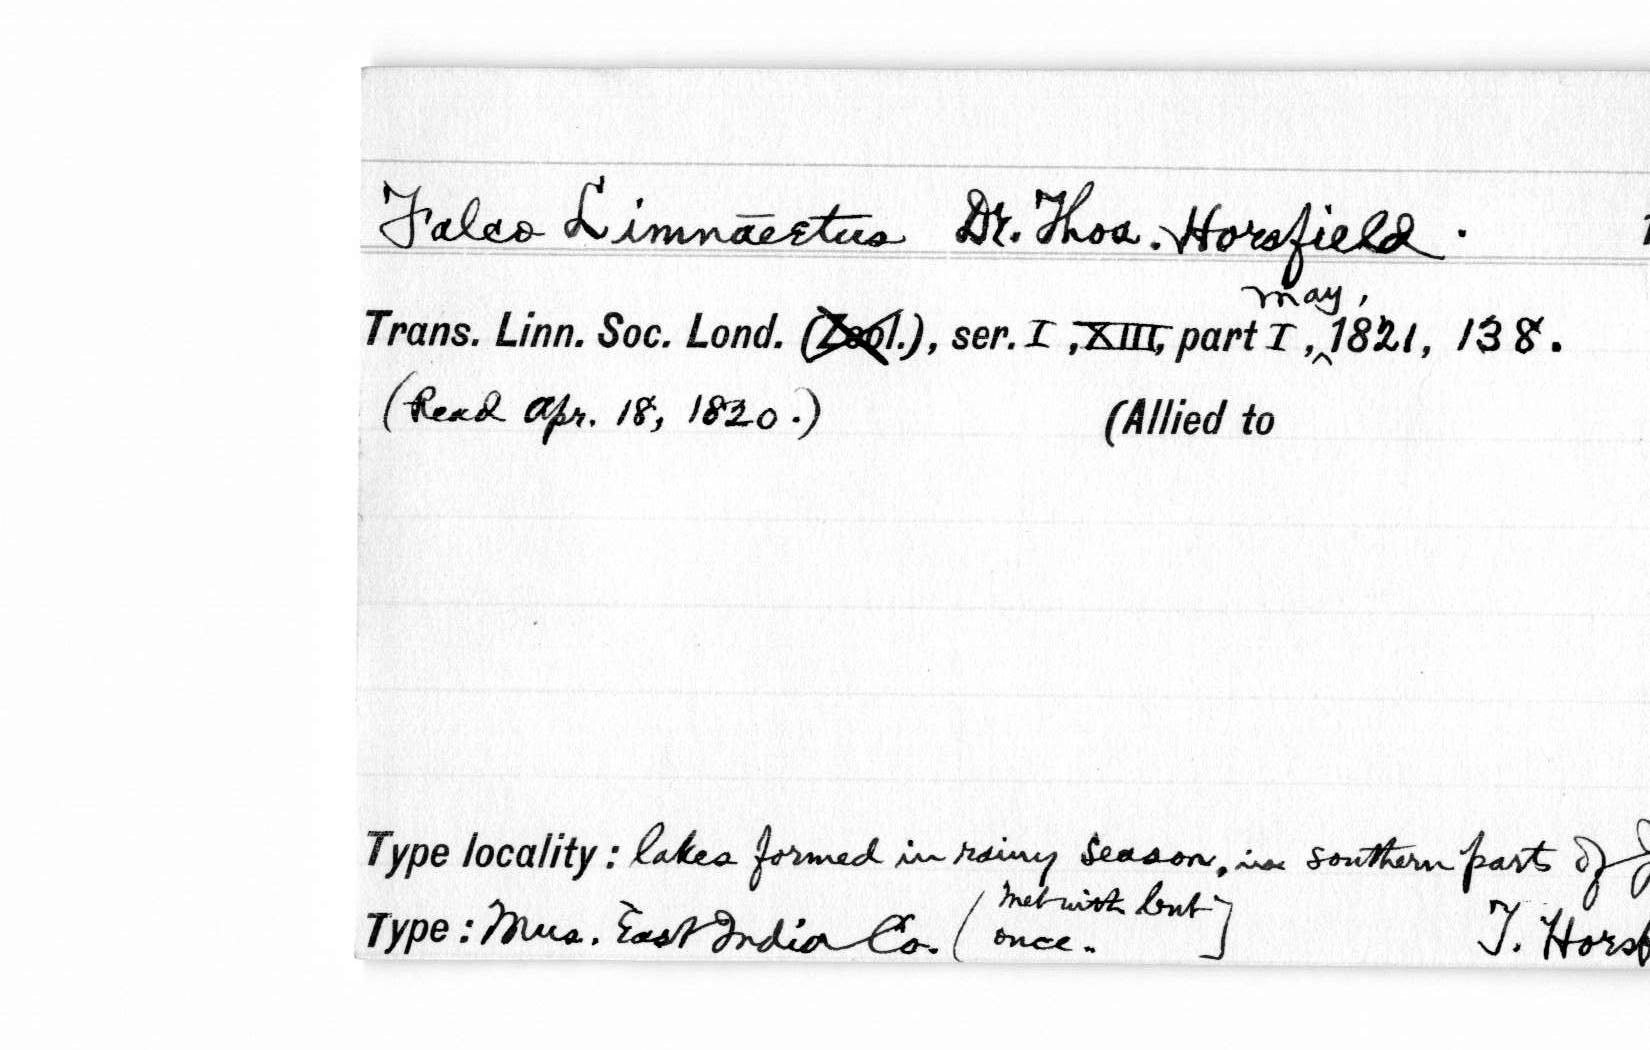 Falco Limnāeetus Dr. Thos. Horsfield.
Trans. Linn. Soc. Lond. (Zool.), ser. I, XIII, part I, May, 1821, 138.
(Read Apr. 18, 1820.) (Allied to
Type locality: lakes formed in rainy season, in southern parts of J
Type: Mus. East India Co. (met with but once.] T. Horsf